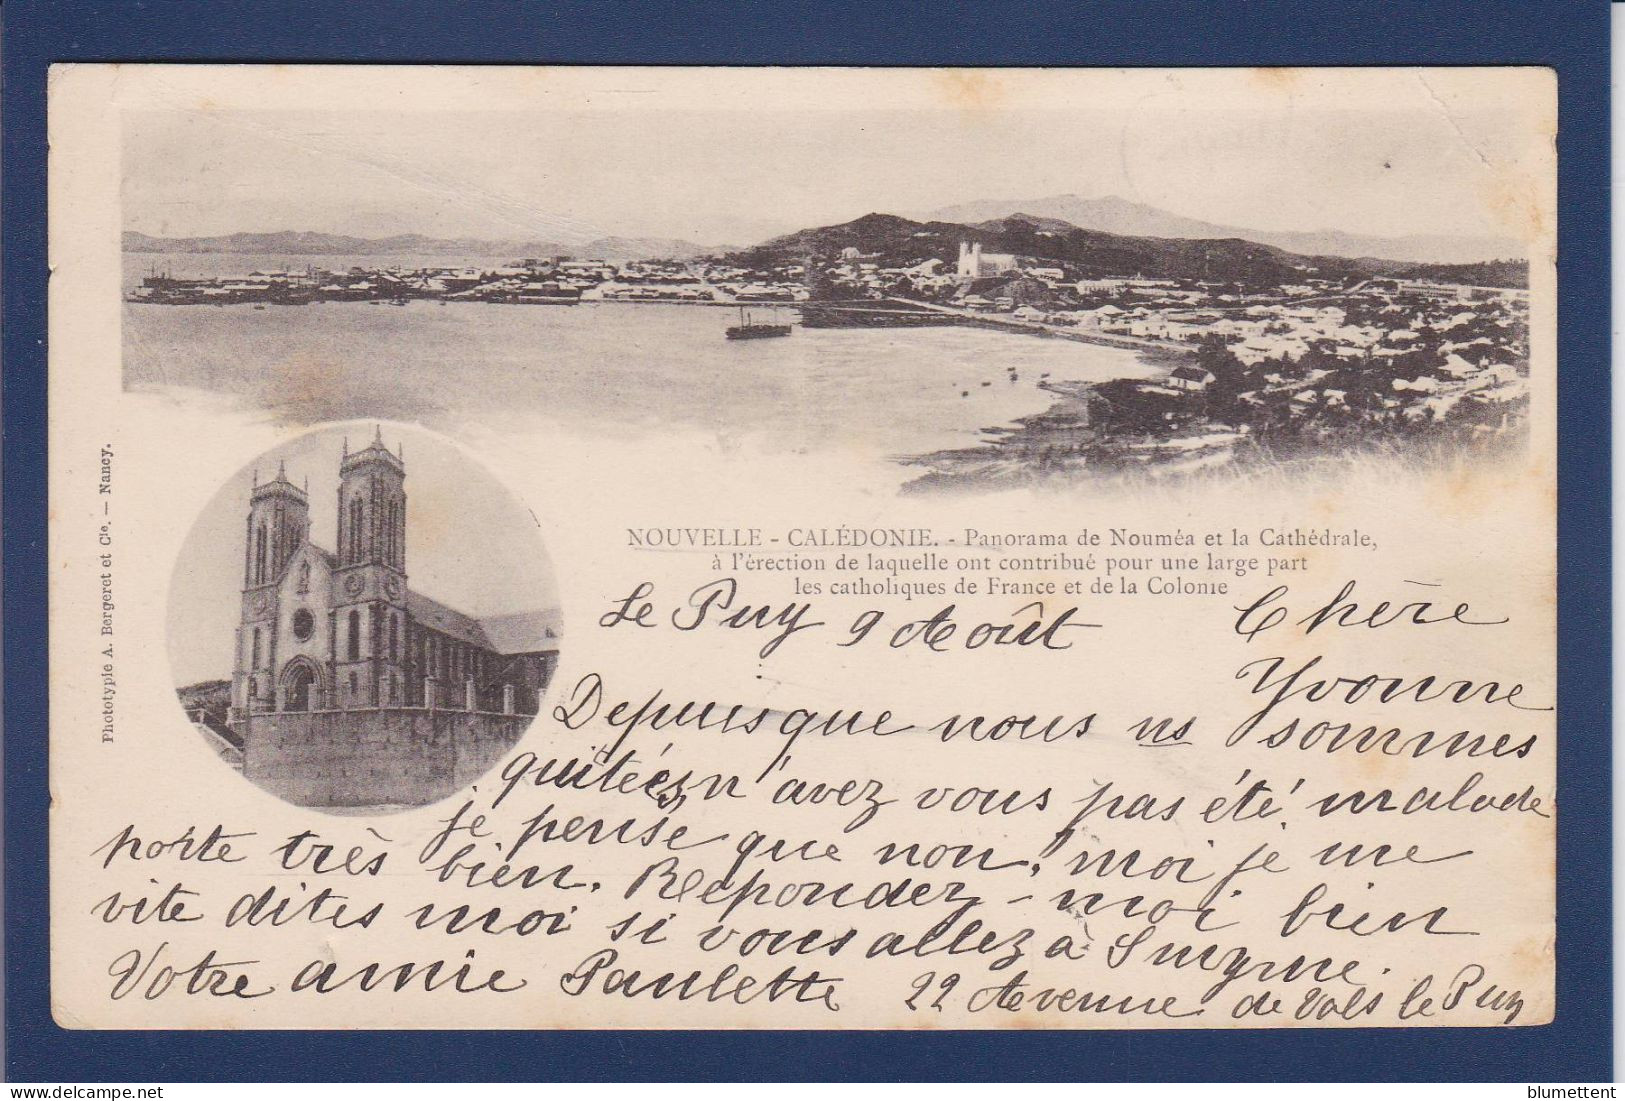 NOUVELLE - CALÉDONIE. - Panorama de Nouméa et la Cathédrale,
à l'érection de laquelle ont contribué pour une large part
les catholiques de France et de la Colonie
Phototypie A. Bergeret et Cie. — Nancy.
Le Puy 9 Août Chère
Yvonne
Depuis que nous ns sommes
quitées n'avez vous pas été malade
je pense que non, moi je me
porte très bien. Repondez-moi bien
vite dites moi si vous allez à Smyrne.
Votre amie Paulette 22 Avenue de Vals le Puy
blumettent